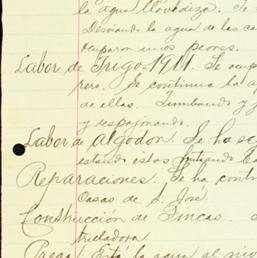 la agua llovediza. Se
Desviando la agua de las ca
ocuparon unos peones.
Labor de Trigo-1911. Se ocup
pero. Se continua la a
de ellas. Tumbando y j
y despajonando.
Labor de Algodon. Se ha se
estando estos
Reparaciones: Se ha contr
Casas de S. José.
Construcción de Fincas. S
trueladora.
Presa: Está la agua al niv